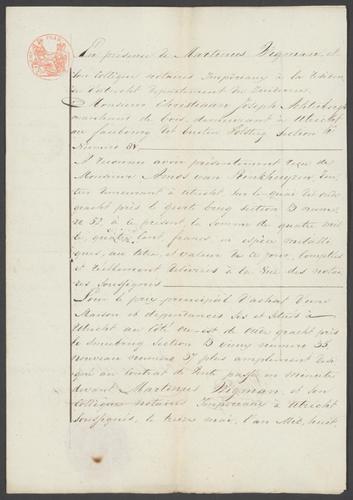 En présence de Martinus Digman, et
son Collègue notaires Impériaux à la résidence
d'Utrecht Departement du
Monsieur Christiaan Joseph
marchand de bois, demeurant à Utrecht
au faubourg Section
Numero
A reconnu avoir présentement reçu de
Monsieur Amos van
demeurant à Utrecht, sur le quai de oude
gracht près le brug section B nume
ro 52, à ce présent la somme de quatre mil
le, quatre cent francs, en espèce metalli
ques, au titre, et valeur de ce jour, Comptées
et réellement délivrées à la vue des notai
res soussignés
Pour le prix principal d'achat d'une
Maison et dependances sis et situés à
Utrecht au côté ouest de Oude gracht près
le brug Section B numero 55
nouveau numero 57 plus amplement
au contrat de vente passé en minute
devant Martinus Digman, et son
Collègue notaires Impériaux à Utrecht
soussignés, le treize mai, l'an Mil huit